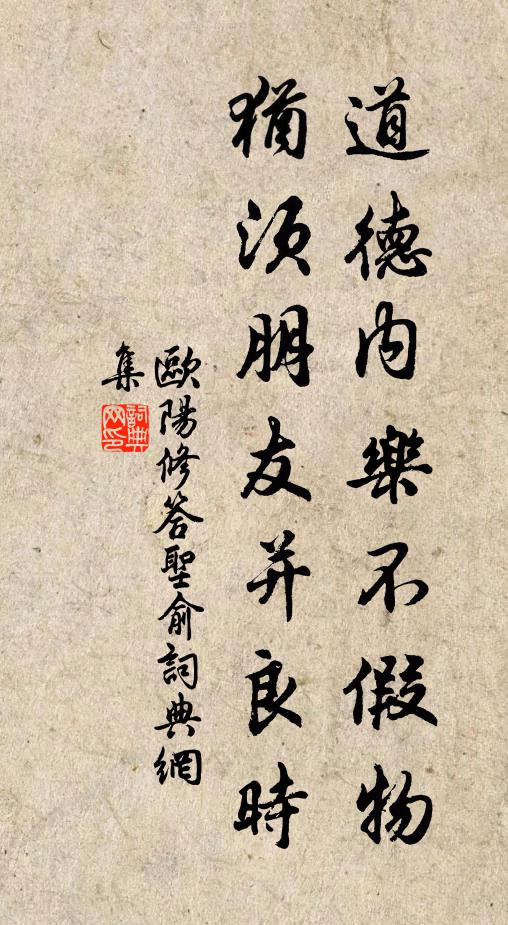 道德内樂不假物
猶須朋友并良時
歐陽修答聖俞詞典網
集
詞典網印